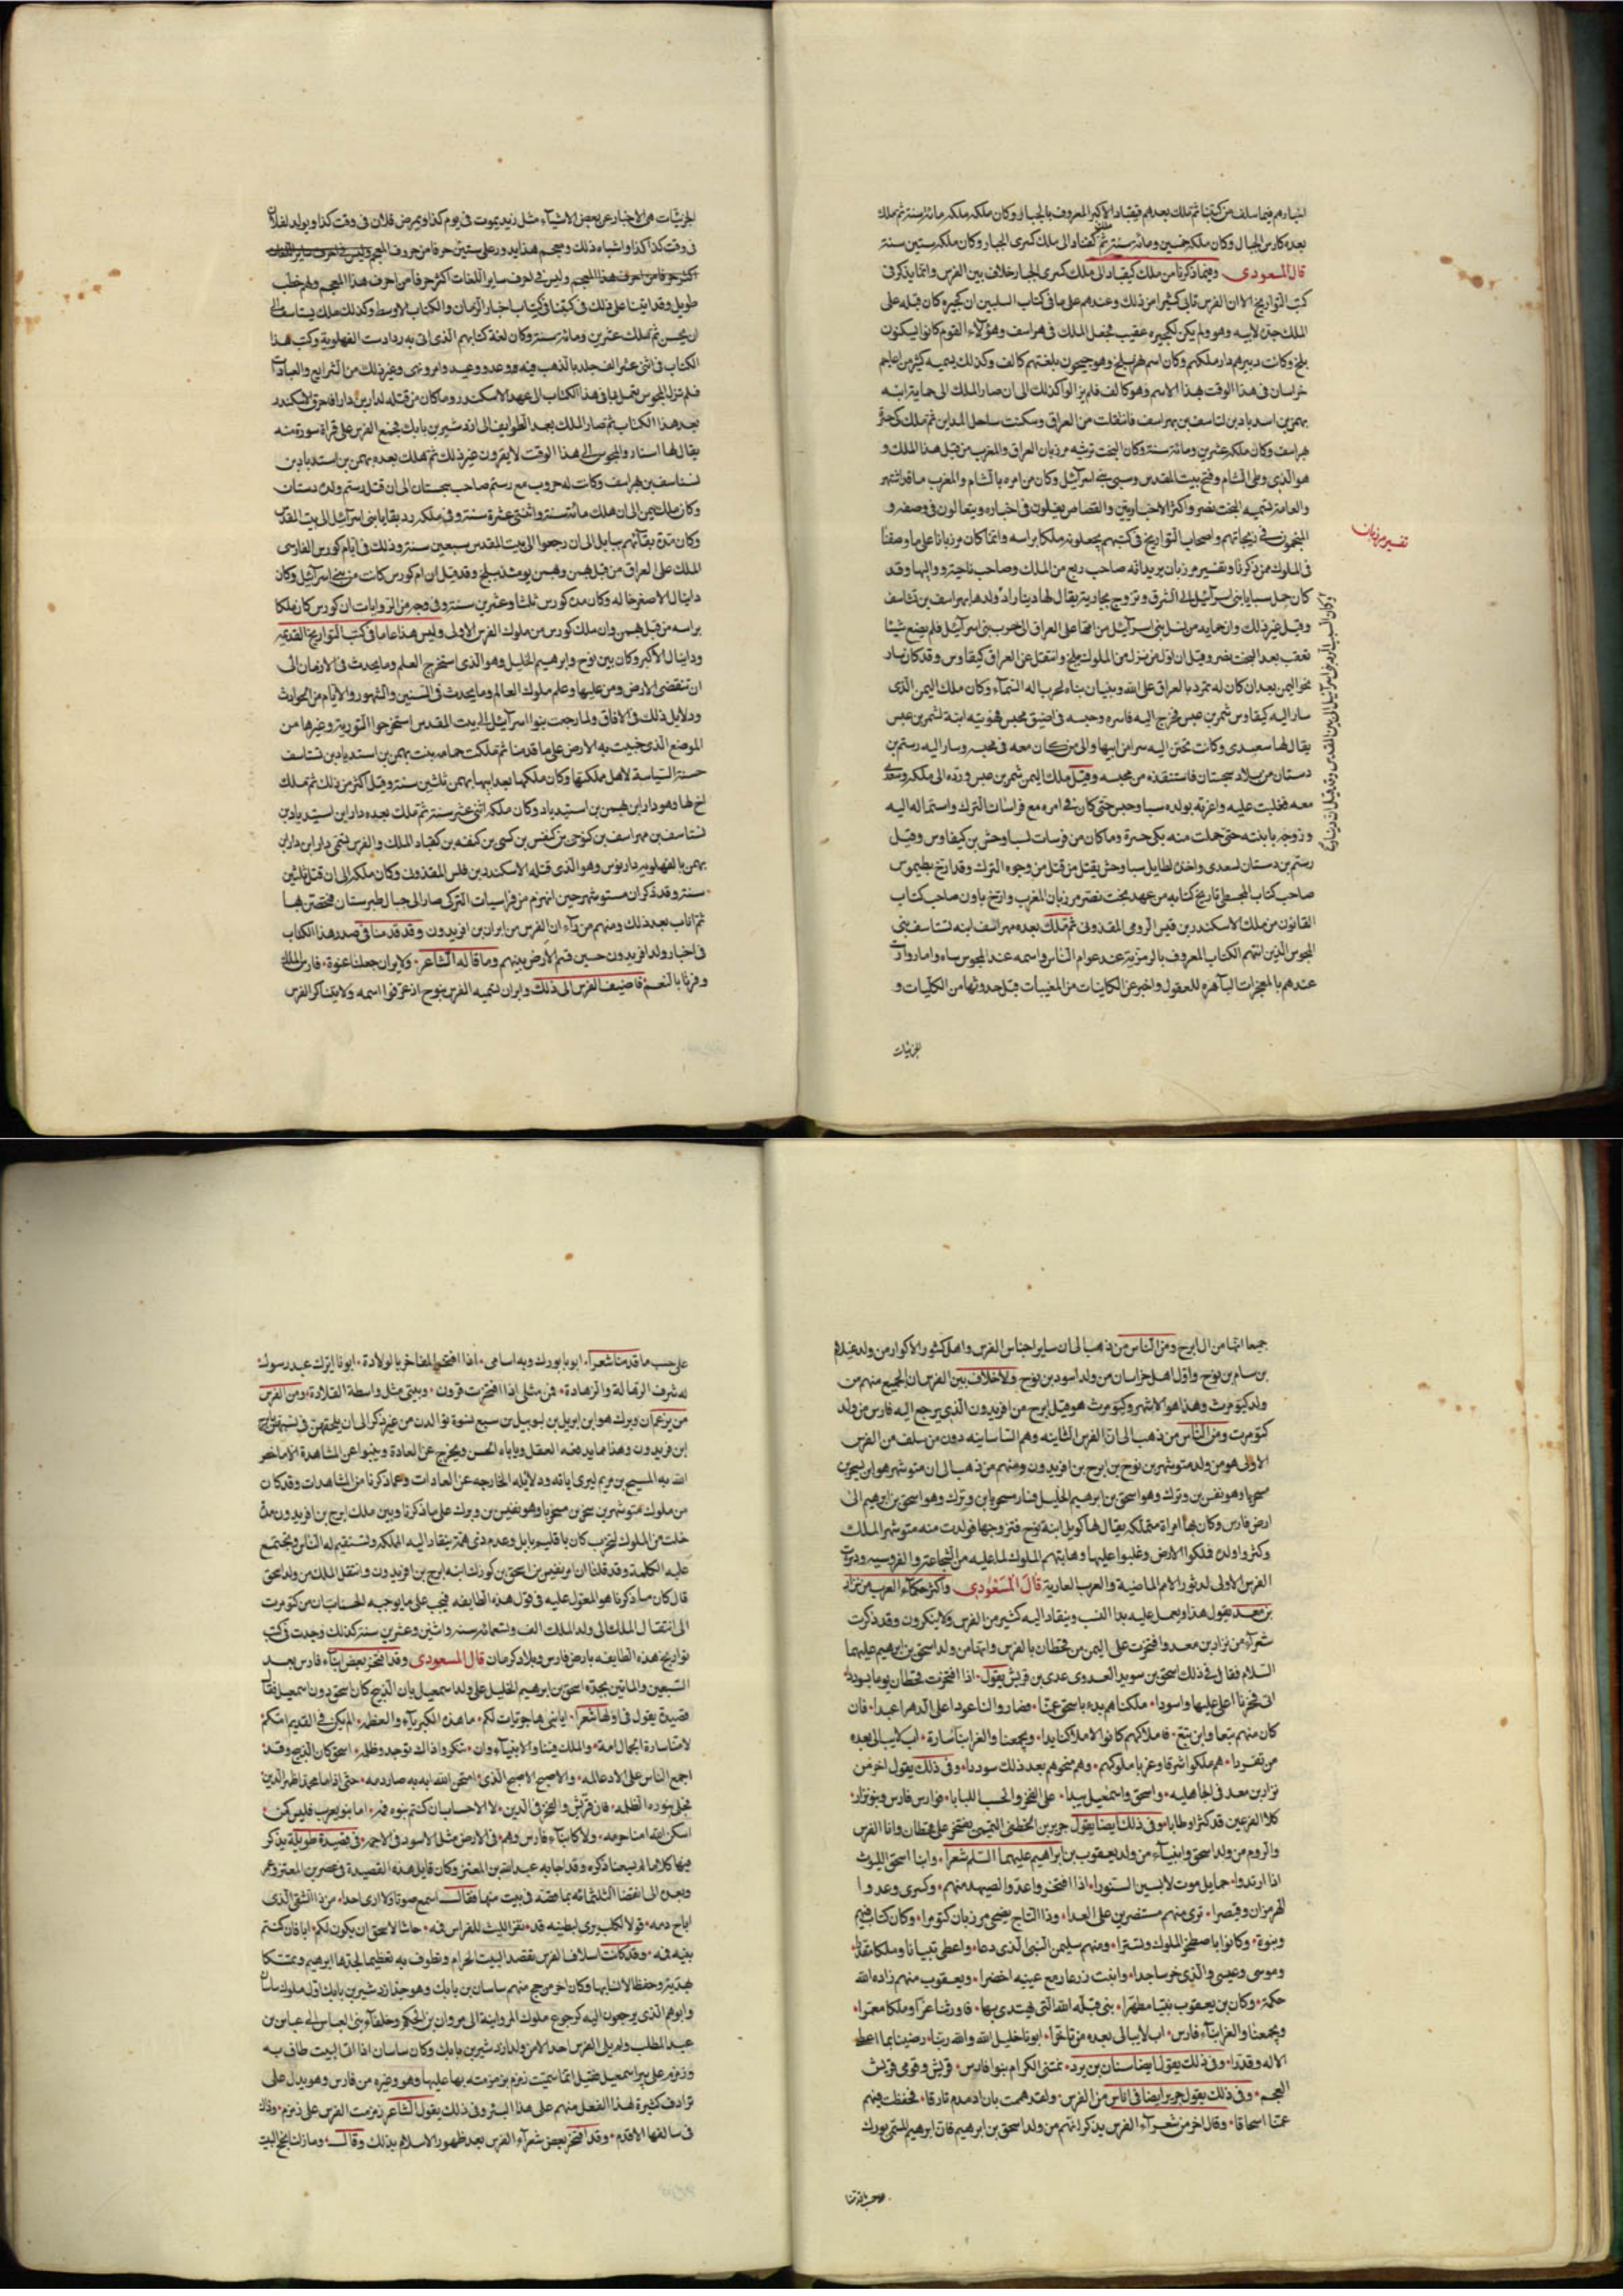 اخبارهم فيما سلف من كتبنا ثم ملك بعدهم قيقباد الاكبر المعروف بالجبار وكان ملكه مائة سنة ثم ملك
بعده كاوس الجبال وكان ملكه خمسين ومائة سنة ثم كقباد الى ملك كسرى الجبار وكان ملكه ستين سنة
قال المسعودي وفيما ذكرنا من ملك كيقباد الى ملك كسرى الجبار خلاف بين الفرس وانما يذكر في
كتب التواريخ الا ان الفرس تابى كثيرا من ذلك وعندهم على ما في كتاب
الملك جد لابيه وهو ولم يكن لكيخسره عقيب فجعل الملك في هراسف وهؤلاء القوم كانوا يسكنون
بلخ وكانت دارهم دار ملكهم وكان اسم نهر بلخ وهو جيحون بلغتهم كالف وكذلك يسميه كثير من اعاجم
خراسان في هذا الوقت بهذا الاسم وهو كالف فلم يزالوا كذلك الى ان صار الملك الى حماية ابنه
بهمن بن اسبدياد بن لتاسف بن بهراسف فانتقلت من العراق وسكنت ساحل المداين ثم ملك
هراسف وكان ملكه عشرين ومائة سنة وكان البخت نرشه مرزبان العراق والمغرب من قبل هذا الملك و
هو الذي وطئ الشام وفتح بيت المقدس وسبى بني اسرائيل وكان من امره بالشام والمغرب ما قد اشتهر
والعامة تسميه البخت نصر واكثر الاخباريين والقصاص يغلون في اخباره ويتغالون في وصفه و
المنجمون في زيجاتهم واصحاب التواريخ في كتبهم يجعلونه ملكا براسه وانما كان مرزبانا على ما وصفنا
تفسير مرزبان
في الملوك ممن ذكرنا وتفسير مرزبان يريد انه صاحب ربع من الملك وصاحب ناحية وواليها وقد
كان حمل سبايا بني اسرائيل الى الشرق وتزوج بجارية يقال لها ديناراد ولد هابهراسف بن لتاسف
وقيل غير ذلك وان حمايه من نسل بني اسرائيل من امها على العراق الى حرب بني اسرائيل فلم يصنع شيئا
تعقب بعد البخت نصر وقيل ان اول من نزل من الملوك بلخ وانتقل عن العراق كيقاوس وقد كان سار
نحو اليمن بعد ان كان له تمرد بالعراق على الله وبنيان بناه لحرب اله السماء وكان ملك اليمن الذي
سار اليه كيقاوس شمر بن عبس فخرج اليه فاسره وحبسه في اضيق محبس فهويته ابنة لشمر بن عبس
يقال لها سعدى وكانت تحسن اليه سرا من ابيها والى من كان معه في محبسه وسار اليه رستم بن
دستان من بلاد سجستان فاستنقذه من محبسه وقتل ملك اليمن شمر بن عبس ورده الى ملكه وسعدى
معه فغلبت عليه واغرته بولده سياوحس حتى كان في امره مع فراسان الترك واستماله اليه
وزوجه بابنته حتى حملت منه بكى خسره وما كان من قتل لسياوحش بن كيقاوس وقتل
رستم بن دستان لسعدى واخذ لطايل سياوحش بقتل من قتل من وجوه الترك وقد ارخ بطليموس
صاحب كتاب المجسطي تاريخ كتابه من عهد بخت نصر مرزبان المغرب وارخ باون صاحب كتاب
القانون من ملك الاسكندر بن فيلبس الرومي المقدوني ثم ملك بعده مهراسف ابنه لتاسف نبي
المجوس الذين اتاهم الكتاب المعروف بالزمزمة عند عوام الناس واسمه عند المجوس بساه
عندهم بالمعجزات الباهرة للعقول واخبر عن الكاينات من المغيبات قبل حدوثها من الكليات و
الجزئيات
الجزئيات هي الاخبار عن بعض الاشياء مثل زيد يموت في يوم كذا ويمرض فلان في وقت كذا ويولد لفلان
في وقت كذا كذا واشباه ذلك ومعجم هذا يدور على ستين حرفا من حروف المعجم
وليس في احرف ساير اللغات اكثر حروفا من احرف هذا المعجم ولهم خطب
طويل وقد اتينا على ذلك في كتبنا في كتاب اخبار الزمان والكتاب الاوسط وكذلك ملك يستاسف الى
ان تمجس ثم هلك عشرين ومائة سنة وكان لغة كتابهم الذي اتى به زرادشت الفهلوية وكتب هذا
الكتاب في اثنى عشر الف جلد بالذهب فيه وعد ووعيد وامر ونهى وغير ذلك من الشرايع والعبادات
فلم تزل المجوس تعمل بما في هذا الكتاب الى عهد الاسكندر وما كان من قتله لدارا بن دارا فاحرق الاسكندر
بعد هذا الكتاب ثم صار الملك بعد الطوايف الى اردشير بن بابك فجمع الفرس على قراة سورة منه
يقال لها استاد والمجوس الى هذا الوقت لا يقرون غير ذلك ثم ملك بعده بهمن بن اسبدياد بن
لستاسف بن بهراسف وكانت له حروب مع رستم صاحب سجستان الى ان قتل رستم ولده دستان
وكان ملك بهمن الى ان هلك مائة سنة واثنتي عشرة سنة وفي ملكه رد بقايا بني اسرائيل الى بيت المقدس
وكان مدة بقائهم ببابل الى ان رجعوا الى بيت المقدس سبعين سنة وذلك في ايام كورس الفارسي
الملك على العراق من قبل بهمن وبهمن يومئذ ببلخ وقد قيل ان ام كورس كانت من بني اسرائيل وكان
دانيال الاصغر خاله وكان مدة كورس ثلثا وعشرين سنة وفي وجه من الروايات ان كورس كان ملكا
براسه من قبل بهمن وان ملك كورس من ملوك الفرس الاولى وليس هذا عاما في كتب التواريخ القديمة
ودانيال الاكبر وكان بين نوح وابراهيم الخليل وهو الذي استخرج العلم وما يحدث في الازمان الى
ان تنقضي الارض ومن عليها وعلم ملوك العالم وما يحدث في السنين والشهور والايام من الحوادث
ودلايل ذلك في الافاق ولما رجعت بنوا اسرائيل الى بيت المقدس استخرجوا التورية وغيرها من
الموضع الذي خبيت به الارض على ما قدمنا ثم ملكت حمايه بنت بهمن بن اسبدياد بن لتاسف
حسنة السياسة لاهل مملكتها وكان ملكها بعد ابيها بهمن ثلثين سنة وقيل اكثر من ذلك ثم ملك
اخ لها وهو دارا بن بهمن بن اسبدياد وكان ملكه اثنى عشر سنة ثم ملك بعده دارا بن
بهمن بالفهلوية داريوس وهو الذي قتله الاسكندر بن فلبس المقدوني وكان ملكه الى ان قتل ثلثين
سنة وقد ذكر ان منوشهر حين انهزم من فراسياب التركي صار الى جبال طبرستان فتحصن بها
ثم اناب بعد ذلك ومنهم من رأى ان الفرس من ايران بن افريدون وقد قدمنا في صدر هذا الكتاب
في اخبار ولد افريدون حين قسم الارض بينهم وما قاله الشاعر ولايران جعلنا عنوة فارس الملك
وفرنا بالنعم فاضيف الفرس الى ذلك وايران تسميه الفرس بنوح اذ عرفوا اسمه ولا يتناكر الفرس
جميعا انها من ال ايرج ومن الناس من ذهب الى ان ساير اجناس الفرس واهل كور الاكوار من ولد عيلام
بن سام بن نوح واول اهل خراسان من ولد اسود بن نوح ولا خلاف بين الفرس ان الجميع منهم من
ولد كيومرث وهذا هو الاشهر وكيومرث هو قبل ايرج من افريدون الذي يرجع اليه فارس من ولد
كيومرث ومن الناس من ذهب الى ان الفرس الثانية وهم الساسانية دون من سلف من الفرس
الاولى هو من ولد منوشهر بن نوح بن ايرج بن افريدون ومنهم من ذهب الى ان منوشهر هو ابن
ارض فارس وكان بها امراة متملكة يقال لها كويل ابنة نوح فتزوجها فولدت منه منوشهر الملك
وكثر اولاده فملكوا الارض وغلبوا عليها وهابتهم الملوك لما عليه من الشجاعة والفروسية ودثرت
الفرس الاولى لدثور الامم الماضية والعرب العاربة قال المسعودي واكثر حكماء العرب من نزار
بن معد يقول هذا ويعمل عليه بدا النسب وينقاد اليه كثير من الفرس ولا ينكرون وقد ذكرت
شعراء من نزار بن معد وافتخرت على اليمن من قحطان بالفرس وانها من ولد اسحق بن ابرهيم عليهما
السلام فقال في ذلك اسحق بن سويد العدوي عدي بن قريش يقول اذا افتخرت قحطان يوما بسودد
اتى فخرنا اعلى عليها واسودا ملكناهم بدء باسحق عمنا فصاروا لنا عودا على الدهر اعبدا فان
كان منهم تبعا وابن تبع فاملاكهم كانوا لاملاكنا يدا ويجمعنا والغر ابناء سارة اب لا يبالي بعده
من تفردا هم ملكوا شرقا وغربا ملوكهم وهم منحوهم بعد ذلك سوددا وفي ذلك يقول اخر من
نزار بن معد في الجاهلية واسحق واسمعيل بيدا على الفخر والحسب اللبابا فوارس فارس وبنو نزار
كلا الفرعين قد كثرا وطابا وفي ذلك ايضا يقول جرير بن الخطفي التميمي يفتخر على قحطان وانا الفرس
والروم من ولد اسحق وانبياء من ولد يعقوب بن ابراهيم عليهما السلم شعرا وابنا اسحق الليوث
اذا ارتدوا حمايل موت لابسين السنورا اذا افتخروا عدوا الصبهبد منهم وكسرى وعدوا
الهرمزان وقيصرا ترى منهم مستنصرين على العدا وذا التاج يضحي مرزبان كيومرا وكان كتاب فيهم
ونبوة وكانوا باصطخر الملوك وتسترا ومنهم سليمن النبي الذي دعا واعطى تبيانا وملكا مقدرا
وموسى وعيسى والذي خر ساجدا وانبت زرعا دمع عينيه اخضرا ويعقوب منهم زاده الله
حكمة وكان بن يعقوب نبيا مطهرا بنى قبلة الله التي يهتدى بها فاورثنا عزا وملكا معمرا
ويجمعنا والغر ابناء فارس اب لا يبالي بعده من تاخرا ابونا خليل الله والله ربنا رضينا بما اعطى
الاله وقدرا وفي ذلك يقول ايضا سنان بن برد نمتني الكرام بنوا فارس قريش وقومي قريش
العجم وفي ذلك يقول جرير ايضا في اناس من الفرس
عمنا اسحاقا وقال اخر من شعراء الفرس يذكر انهم من ولد اسحق بن ابرهيم
على حسب ما قدمنا شعرا ابونا بورك وبه اسامى اذا افتخر المفاخر بالولادة ابونا وبرك عبد رسول
له شرف الرسالة والزهادة فمن مثلي اذا افتخرت قرون وبيتي مثل واسطة القلادة ومن الفرس
من يزعم ان وبرك هو ابن ايريل بن لوبيل بن سبع نسوة تولدن من غير ذكر الى ان يلحقهن في نسبهن بايرج
ابن فريدون وهذا مما يدفعه العقل ويأباه الحس ويخرج عن العادة وينبوا عن المشاهدة الا ما خص
الله به المسيح بن مريم ليري اياته ودلائله الخارجة عن العادات وعما ذكرنا من المشاهدات وقد كان
خلت من الملوك لتخرب كان باقليم بابل وعدم ذي همة ينقاد اليه المملكة وتستقيم له الناس وتجتمع
عليه الكلمة وقد قلنا ان
قال كان ما ذكرنا هو المعول عليه في قول هذه الطايفة فيجب على ما يوجبه الحساب ان من كيومرث
الى انتقال الملك الى ولد الملك الف وتسعمائة سنة واثنين وعشرين سنة كذلك وجدت في كتب
تواريخ هذه الطايفة بارض فارس وبلاد كرمان قال المسعودي وقد افتخر بعض ابناء فارس بعد
التسعين والمأتين بجده اسحق بن ابرهيم الخليل على ولد اسمعيل بان الذبيح كان اسحق دون اسمعيل فقال
قصيدة يقول في اولها شعرا ايا بني هاجر ابنت لكم ما هذه الكبرياء والعظمه الم يكن في القديم امكم
لامنا سارة الجمال امه والملك فينا والانبياء وان تنكروا ذاك توجدوا ظلمه اسحق كان الذبيح وقد
اجمع الناس على الا ادعا لمه حتى اذا ما محمد اظهر الدين
مجلى بنوره الظلمه قلتم قريش والفخر في الدين لا الاحساب ان كنتم بنوه فمه اما بنو يعرب فليس كمن
اسكن الله امنا حرمه ولا كابناء فارس وهم في الارض مثل الاسود في الاجمه في قصيدة طويلة يذكر
فيها كلاما لا يسعنا ذكره وقد اجابه عبد الله بن المعتز وكان قايل هذه القصيدة في عصر بن المعتز وعمر
وبعده الى انقضا الثلثمائة بما وصفه في بيت منها فقال اسمع صوتا ولا ارى احدا من ذا الشقي الذي
اباح دمه حاشا لاسحق ان يكون لكم ابا فان كنتم
بنيه فمه وقد كانت اسلاف الفرس تقصد البيت الحرام وتطوف به تعظيما لجدها ابرهيم وتمسكا
بهديه وحفظا لانسابها وكان اخر من حج منهم ساسان بن بابك وهو جد ازدشير بن بابك اول ملوك ساسان
وابوهم الذي يرجعون اليه كرجوع ملوك المروانية الى مروان بن الحكم وخلفاء بني العباس الى عباس بن
عبد المطلب ولم يلي الفرس احد الا من ولد ازدشير بن بابك وكان ساسان اذا اتى البيت طاف به
وزمزم على بير اسمعيل فقيل انما سميت زمزم بزمزمته بها عليها وهو وغيره من فارس وهو يدل على
ترادف كثيرة لهذا الفعل منهم على هذا البئر وفي ذلك يقول الشاعر زمزمت الفرس على زمزم وذاك
في سالفها الاقدم وقد افتخر بعض شعراء الفرس بعد ظهور الاسلام بذلك وقال وما زلنا نحج البيت